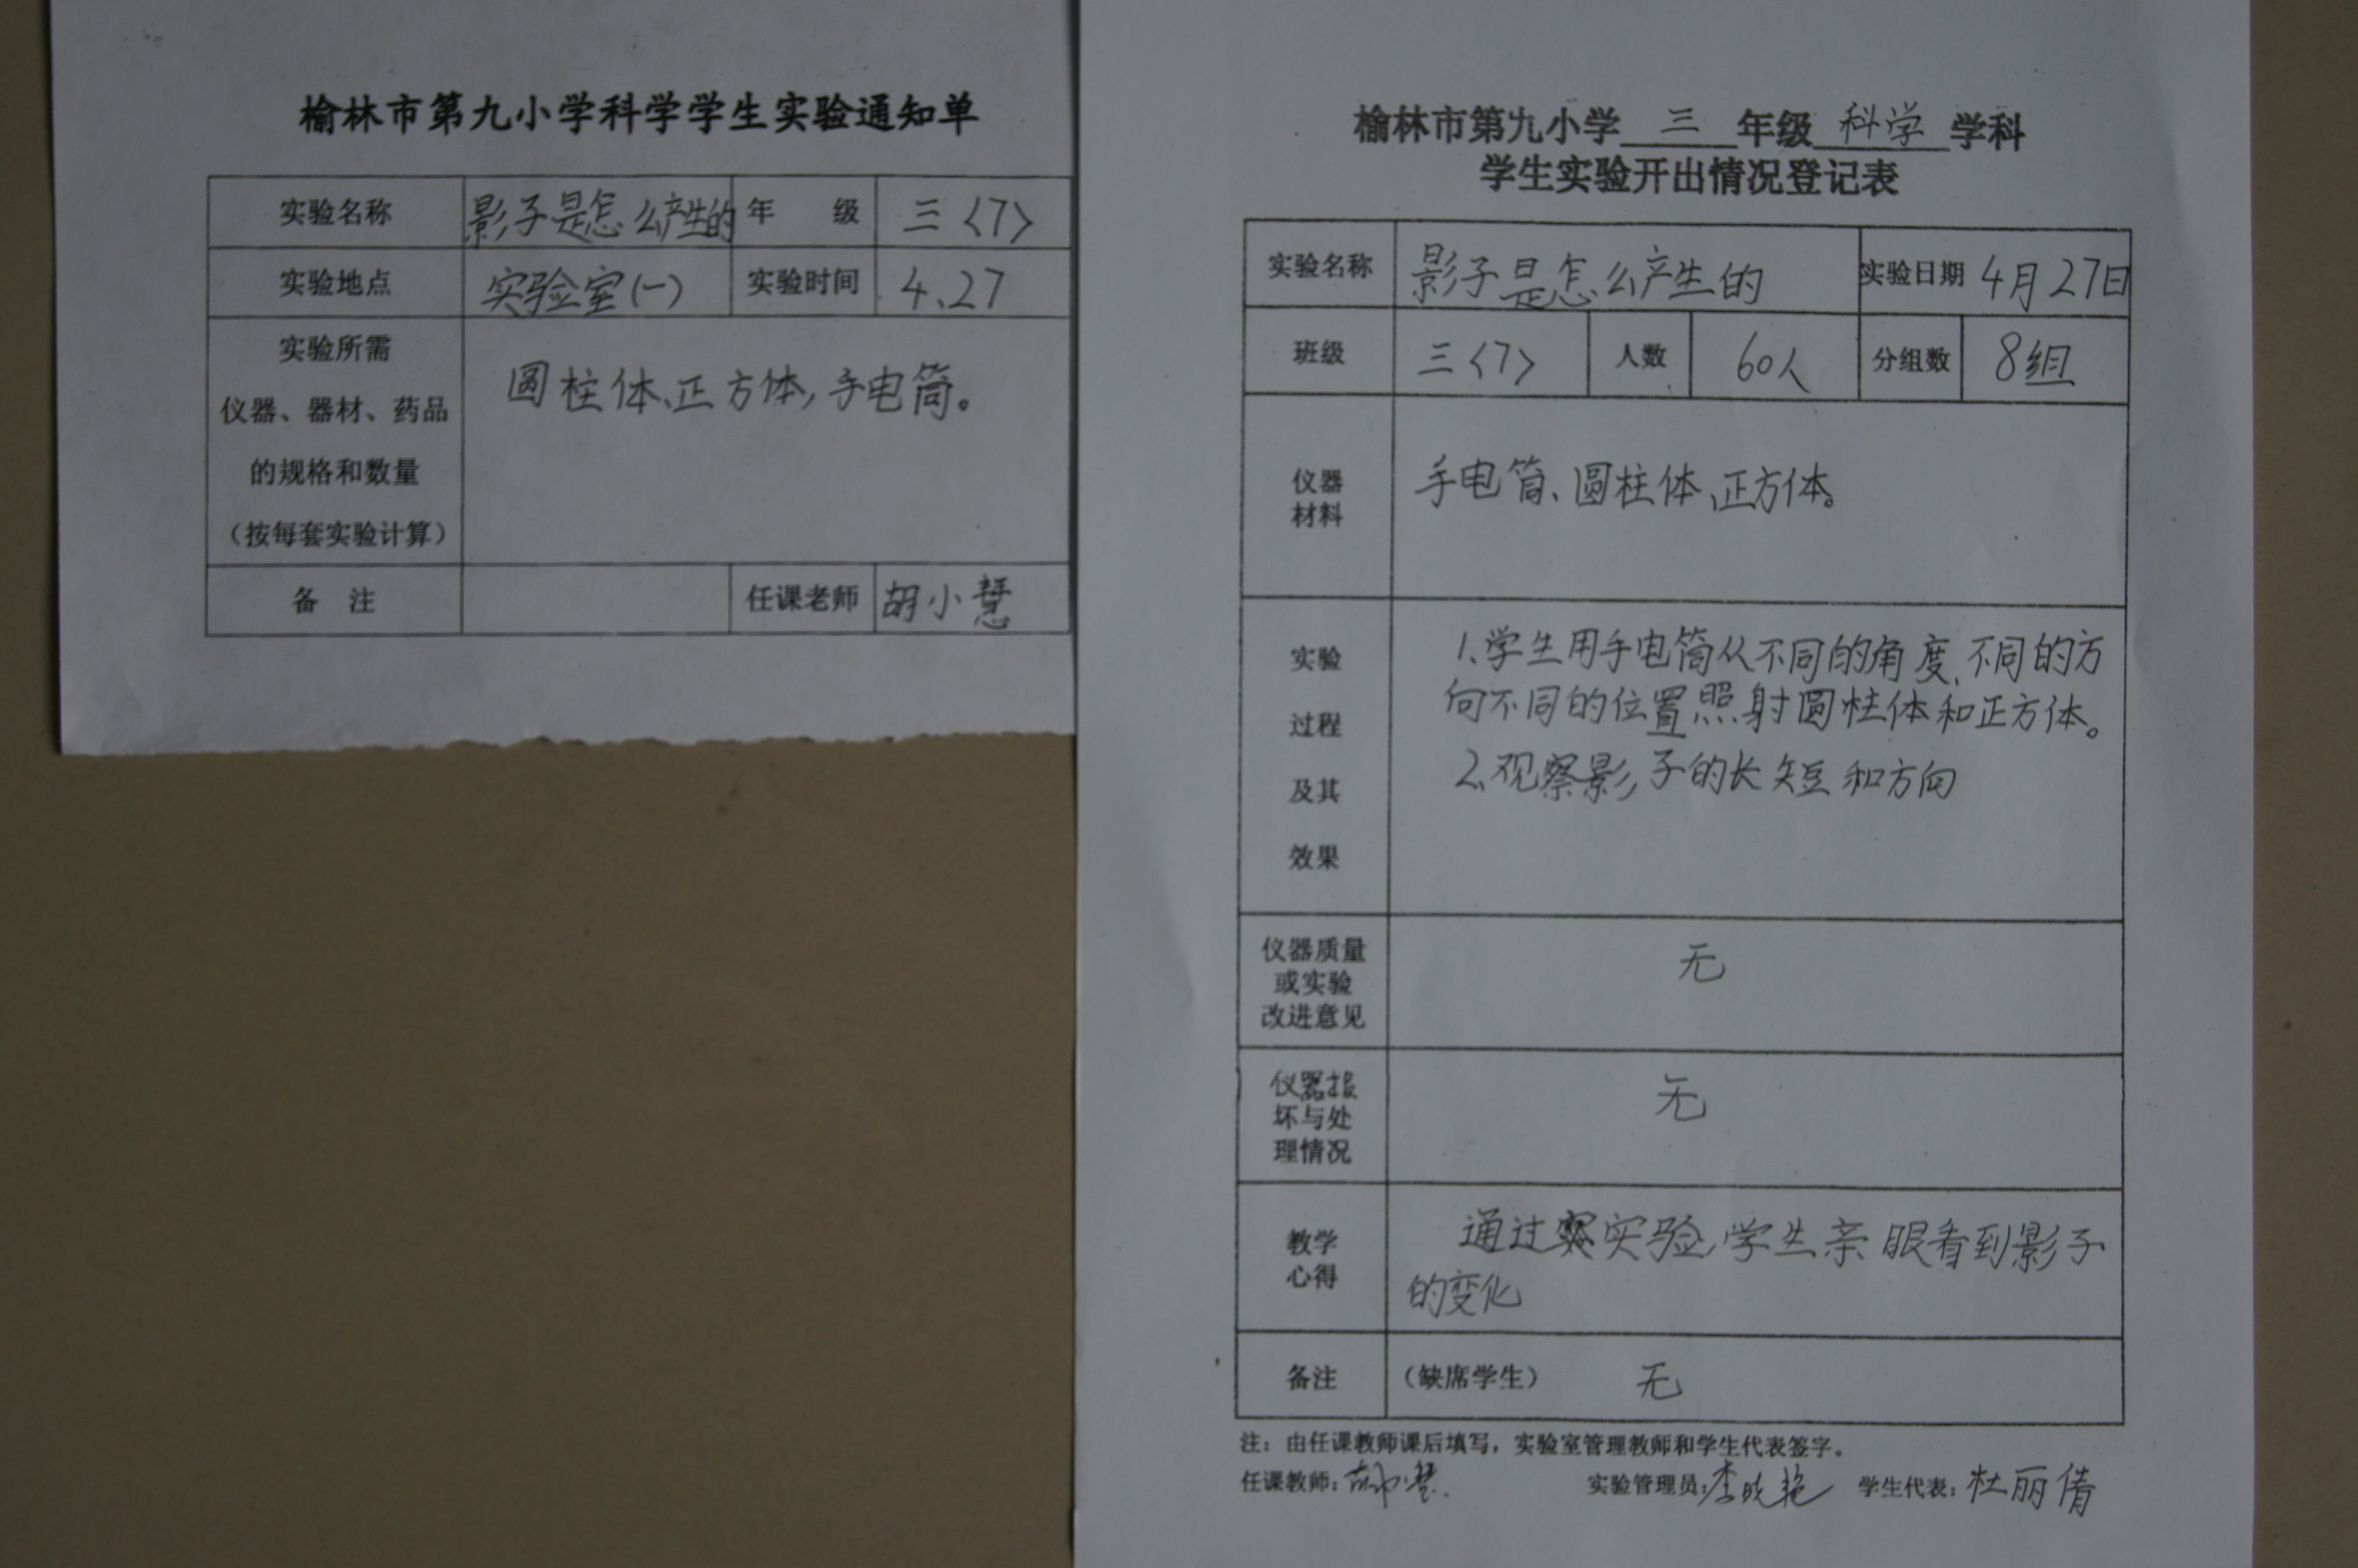 榆林市第九小学科学学生实验通知单
实验名称 影子是怎么产生的 年 级 三〈7〉
实验地点 实验室(一) 实验时间 4、27
实验所需
仪器、器材、药品
的规格和数量
（按每套实验计算）
圆柱体、正方体，手电筒。
备 注 任课老师 胡小慧
榆林市第九小学 三 年级 科学 学科
学生实验开出情况登记表
实验名称 影子是怎么产生的 实验日期 4月27日
班级 三〈7〉 人数 60人 分组数 8组
仪器
材料
手电筒、圆柱体、正方体。
实验
过程
及其
效果
1、学生用手电筒从不同的角度、不同的方
向不同的位置照射圆柱体和正方体。
2、观察影子的长短和方向
仪器质量
或实验
改进意见
无
仪器报
坏与处
理情况
无
教学
心得
通过实验，学生亲眼看到影子
的变化
备注 （缺席学生） 无
注：由任课教师课后填写，实验室管理教师和学生代表签字。
任课教师：胡小慧. 实验管理员：李晓艳 学生代表：杜丽倩